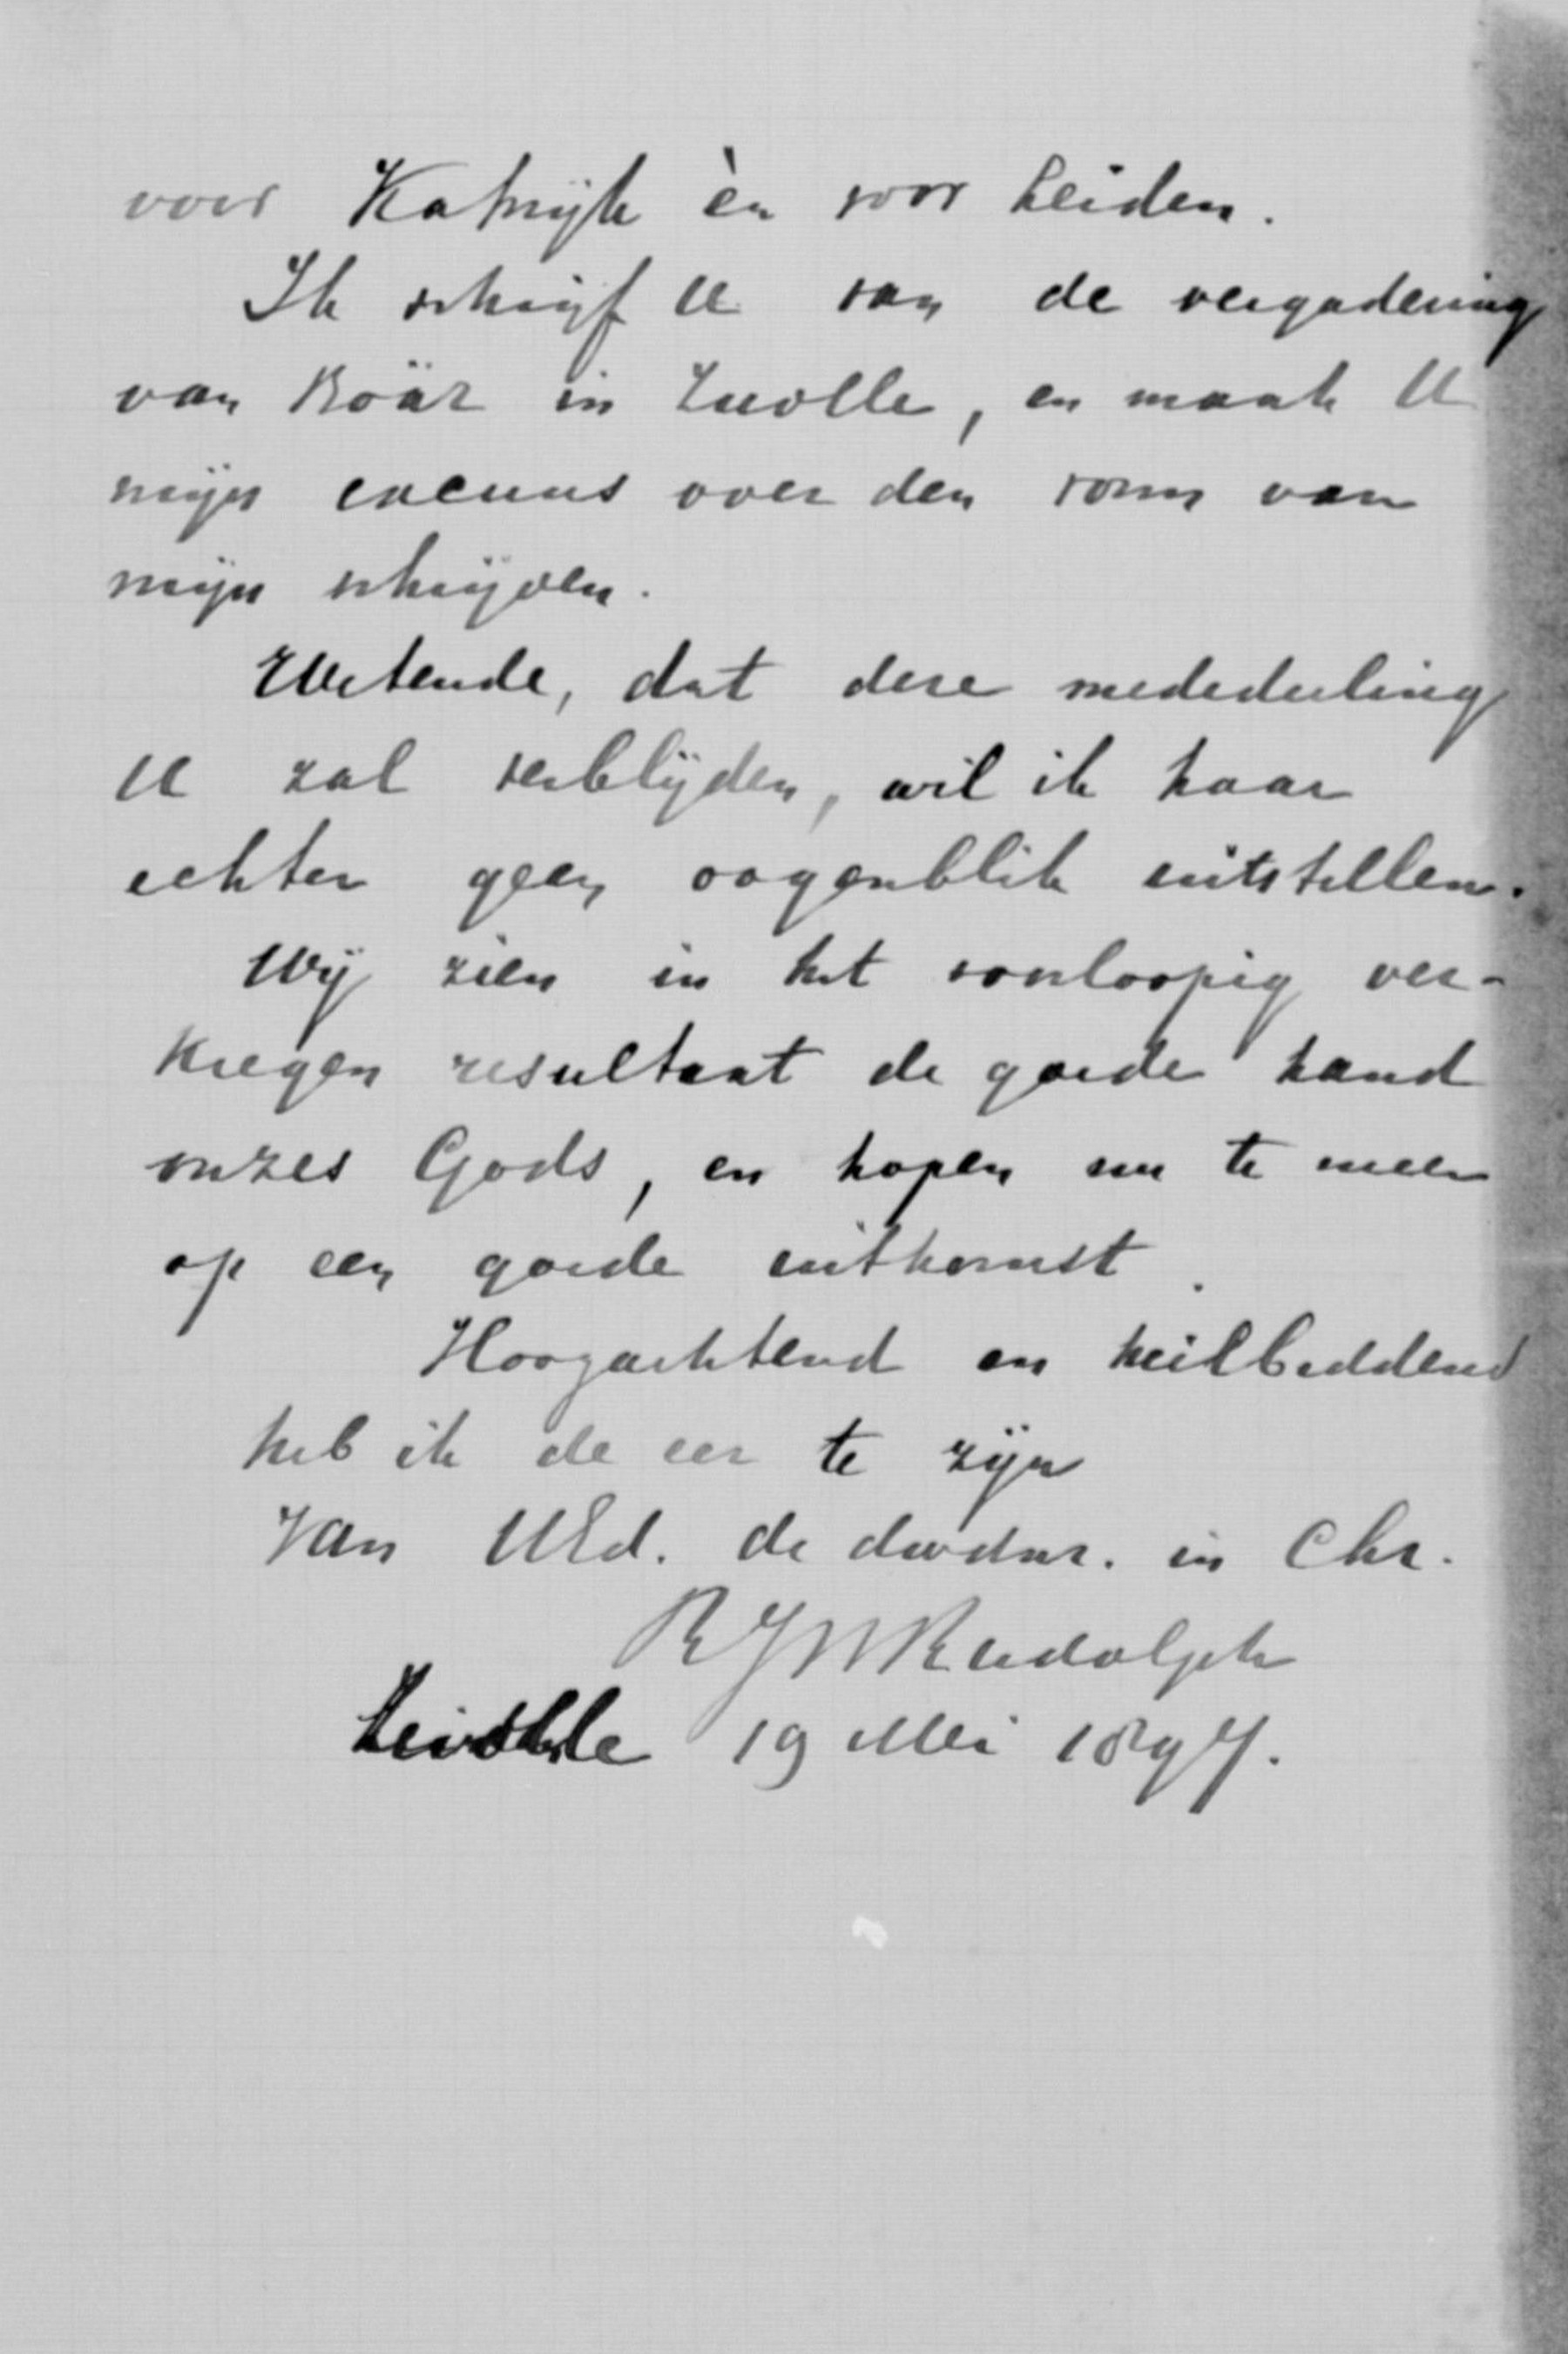 voor Katwijk èn voor Leiden.
Ik schrijf U van de vergadering
van Boäz in Zwolle, en maak U
mijn excuus over den vorm van
mijn schrijven.
Wetende, dat deze mededeeling
U zal verblijden, wil ik haar
echter geen oogenblik uitstellen.
Wij zien in het voorloopig ver-
kregen resultaat de goede hand
onzes Gods, en hopen nu te meer
op een goede uitkomst.
Hoogachtend en heilbiddend
heb ik de eer te zijn
Van UEd. de dw dnr. in Chr.
R J W Rudolph
Zwolle 19 Mei 1897.